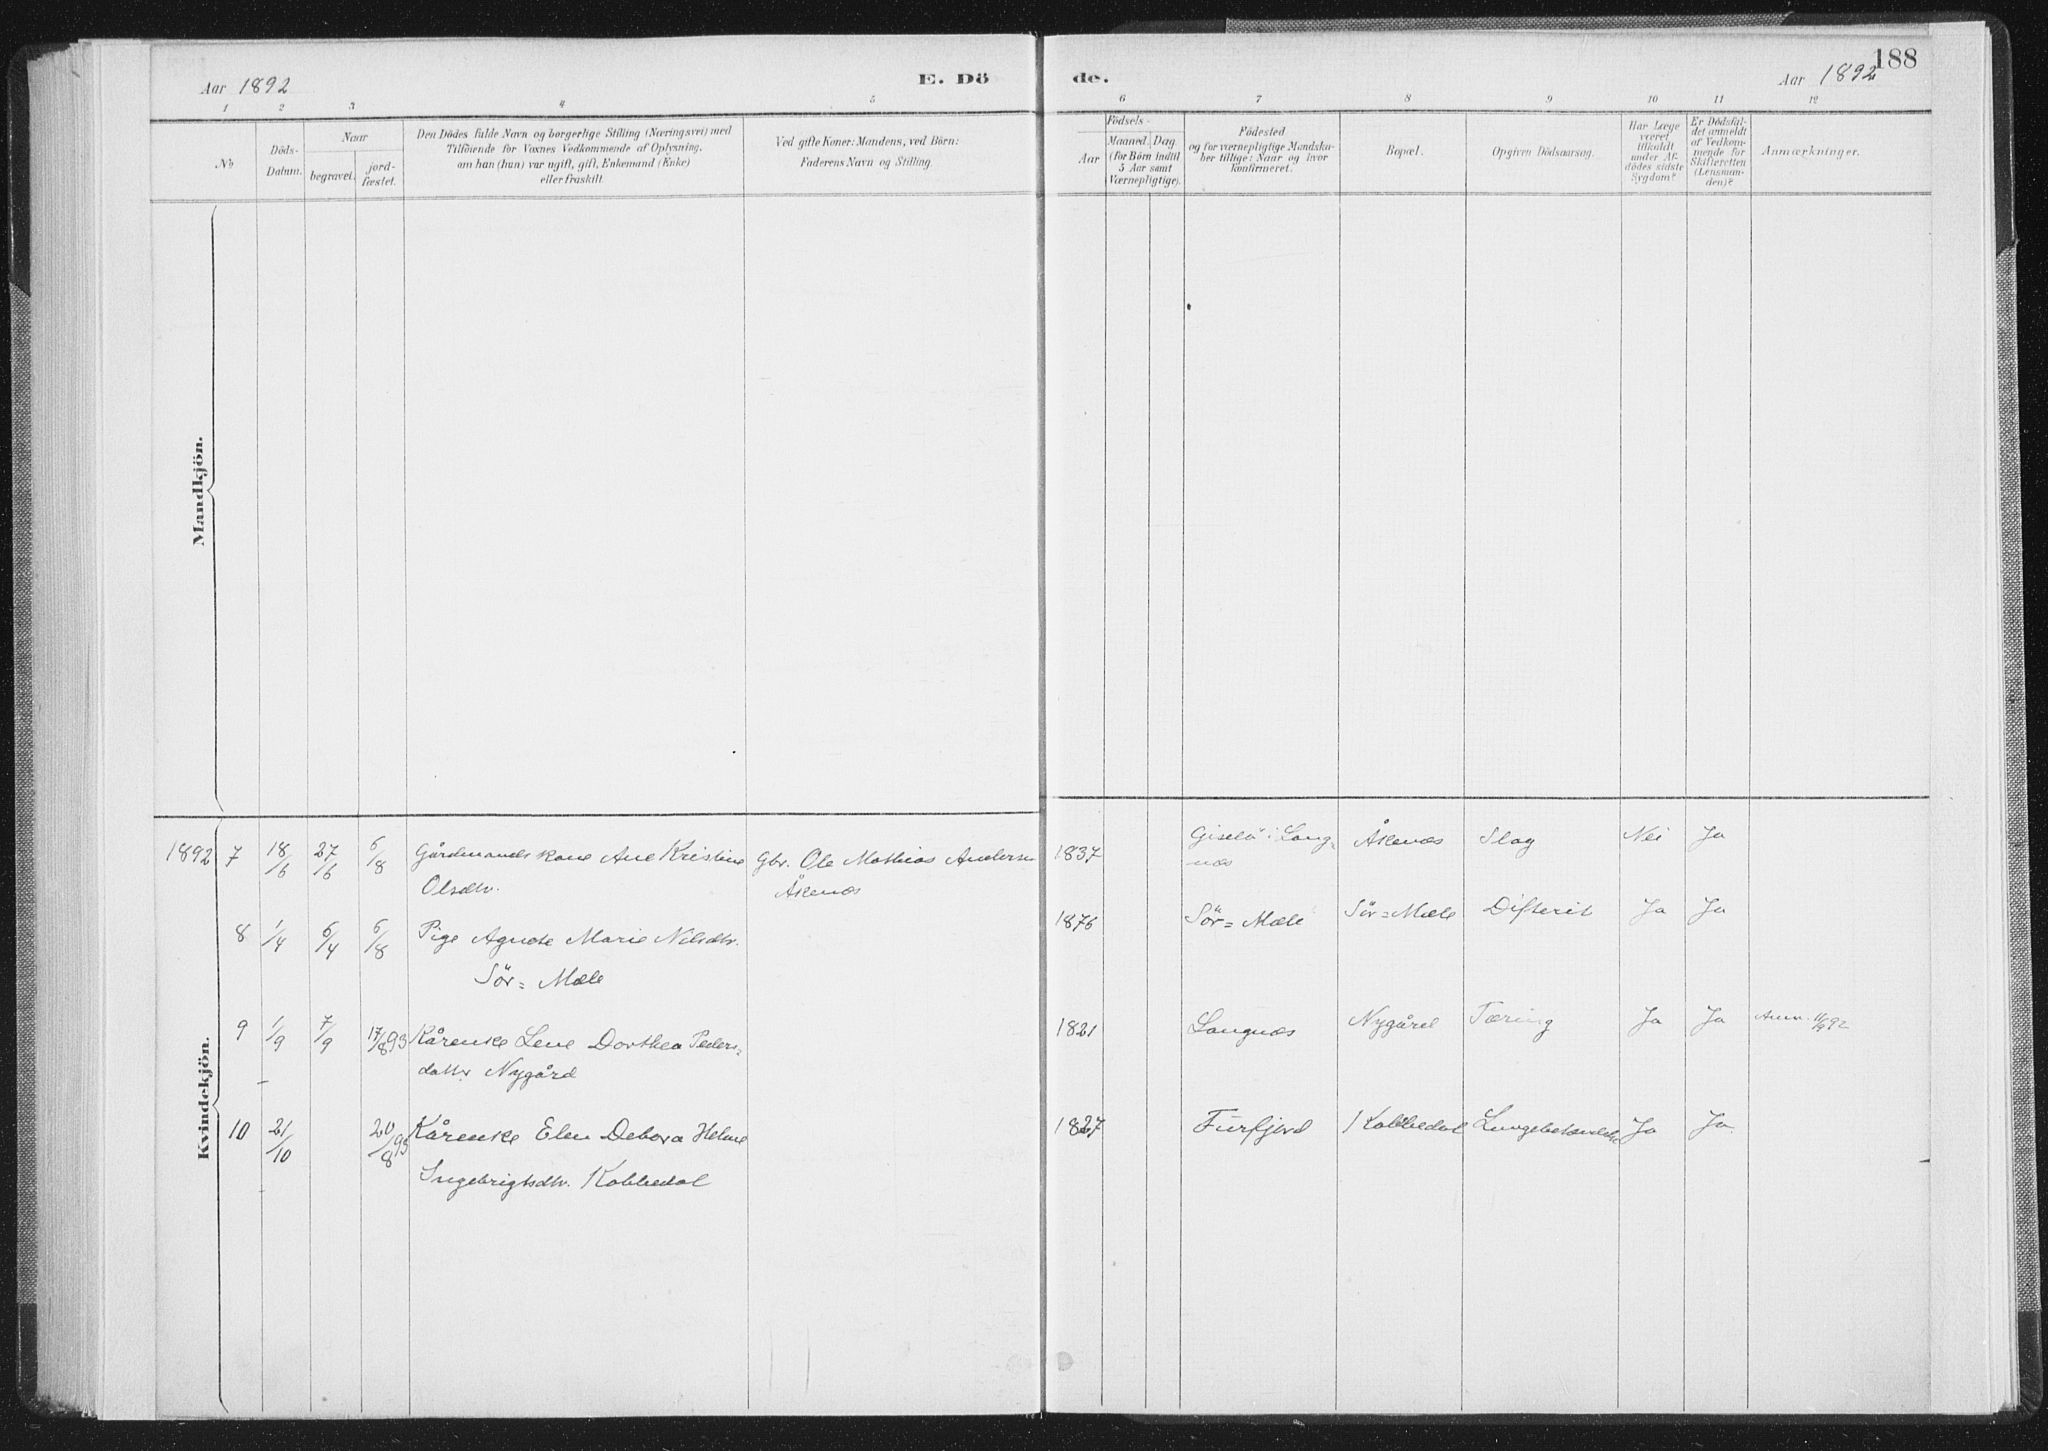 188
Aar 1892 E. Dö de. Aar 1892
1 2 3 4 5 6 7 8 9 10 11 12
No
Döds-
Datum.
Naar
begravet.
jord-
fæstet.
Den Dödes fulde Navn og borgerlige Stilling (Næringsvei) med
Tilföiende for Voxnes Vedkommende af Oplysning,
om han (hun) var ugift, gift, Enkemand (Enke)
eller fraskilt.
Ved gifte Koner: Mandens, ved Börn:
Faderens Navn og Stilling.
Födsels-
Aar
Maaned. Dag.
(for Börn indtil
5 Aar samt
Værnepligtige).
Födested
og for værnepligtige Mandska-
ber tillige: Naar og hvor
konfirmeret.
Bopæl.
Opgiven Dödsaarsag.
Har Læge
været
tilkaldt
under Af-
dödes sidste
Sygdom?
Er Dödsfal-
det anmeldt
af Vedkom-
mende for
Skifteretten
(Lensman-
den)?
Anmærkninger.
Mandkjön.
Kvindekjön.
1892 7 18/6 27/6 6/8 Gårdmandskone Ane Kristine Gbr. Ole Mathias Andersen 1837 Giselö i Lang= Åkenæs Slag Nei Ja
Olsdtr. Åkenæs næs
8 1/4 6/4 6/8 Pige Agnete Marie Nilsdtr. 1876 Sör=Mæle Sör=Mæle Difterit Ja Ja
Sör=Mæle
9 1/9 7/9 17/8 93 Kårenke Lene Dorthea Peders= 1821 Langnæs Nygård Tæring Ja Ja Anm. 11/9 92
datter Nygård
10 21/10 20/8 93 Kårenke Elen Debora Helene 1827 Furfjord Kobbedal Lungebetændelse Ja Ja.
Ingebrigtsdtr. Kobbedal